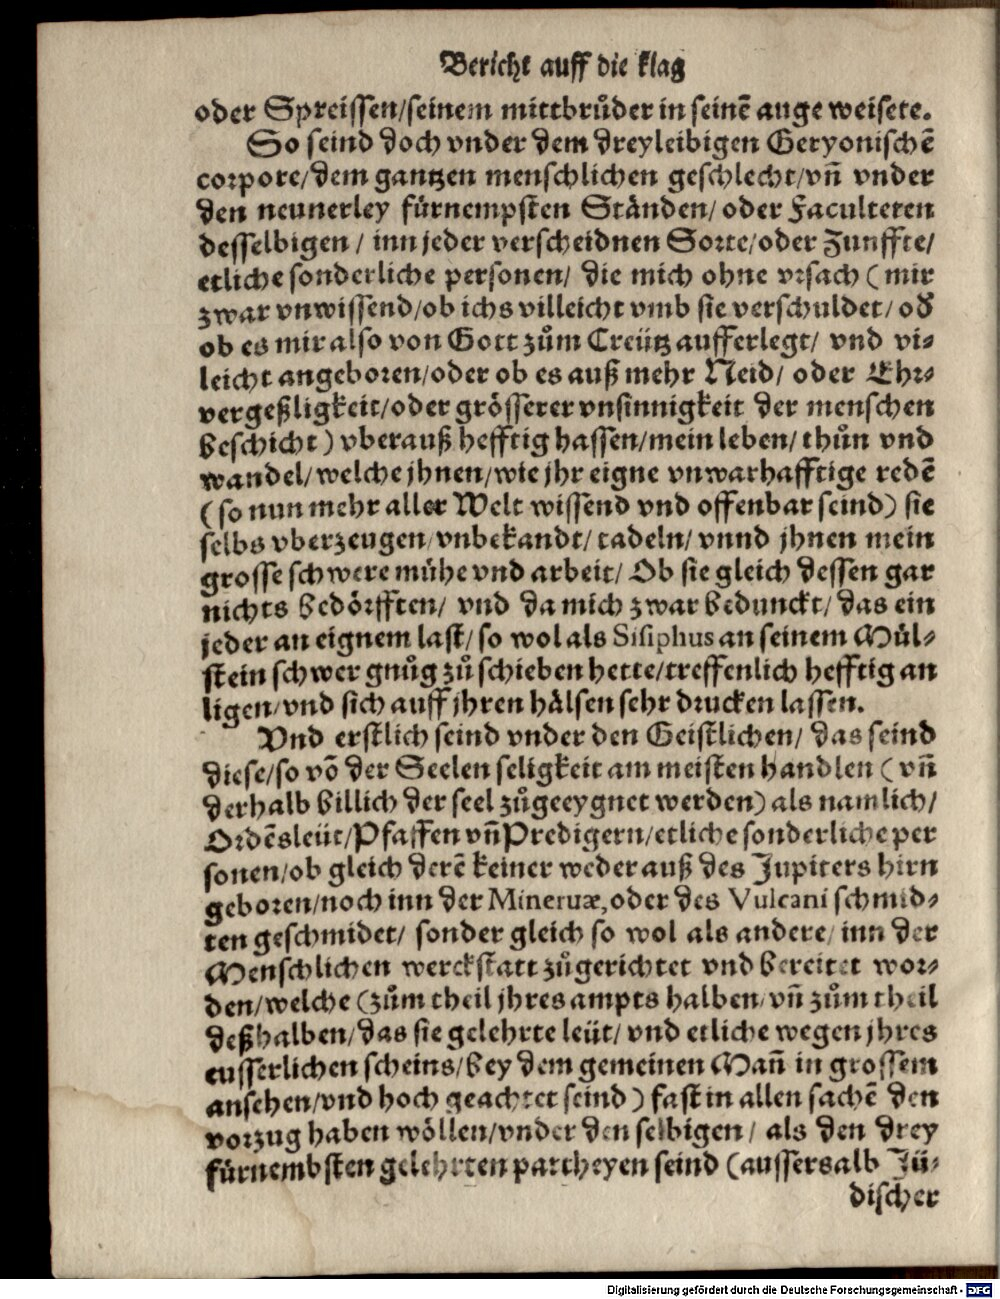 Bericht auff die klag
oder Spreissen/seinem mittbrůder in seinē auge weisete.
So seind doch vnder dem dreyleibigen Geryonischē
corpore/dem gantzen menschlichen geschlecht/vñ vnder
den neunerley fürnempsten Ständen/ oder Faculteten
desselbigen / inn jeder verscheidnen Sorte/oder Zunffte/
etliche sonderliche personen/ die mich ohne vrsach (mir
zwar vnwissend/ob ichs villeicht vmb sie verschuldet/ od
ob es mir also von Gott zům Creütz aufferlegt/ vnd vi-
leicht angeboren/oder ob es auß mehr Neid/ oder Ehr-
vergeßligkeit/oder grösserer vnsinnigkeit der menschen
beschicht) vberauß hefftig hassen/mein leben/ thůn vnd
wandel/welche jhnen/wie jhr eigne vnwarhafftige redē
(so nun mehr aller Welt wissend vnd offenbar seind) sie
selbs vberzeugen/vnbekandt/ tadeln/ vnnd jhnen mein
grosse schwere mühe vnd arbeit/ Ob sie gleich dessen gar
nichts bedörfften/ vnd da mich zwar bedunckt/ das ein
jeder an eignem last/ so wol als Sisiphus an seinem Mül-
stein schwer gnůg zů schieben hette/treffenlich hefftig an
ligen/vnd sich auff jhren hälsen sehr drucken lassen.
Vnd erstlich seind vnder den Geistlichen/ das seind
diese/so võ der Seelen seligkeit am meisten handlen (vñ
derhalb billich der seel zůgeeygnet werden) als namlich/
Ordēsleüt/Pfaffen vñ Predigern/etliche sonderliche per
sonen/ob gleich derē keiner weder auß des Jupiters hirn
geboren/noch inn der Mineruæ, oder des Vulcani schmid-
ten geschmidet/ sonder gleich so wol als andere/ inn der
Menschlichen werckstatt zůgerichtet vnd bereitet wor-
den/welche (zům theil jhres ampts halben/vñ zům theil
deßhalben/das sie gelehrte leüt/ vnd etliche wegen jhres
eusserlichen scheins/bey dem gemeinen Mañ in grossem
ansehen/vnd hoch geachtet seind) fast in allen sachē den
vorzug haben wöllen/vnder den selbigen/ als den drey
fürnembsten gelehrten partheyen seind (aussersalb Jü-
discher
Digitalisierung gefördert durch die Deutsche Forschungsgemeinschaft - DFG